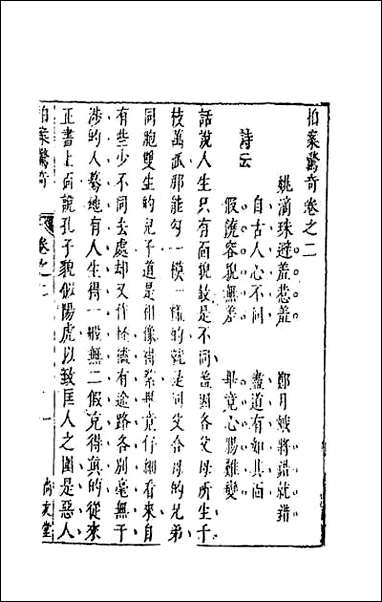 拍案驚奇卷之二
姚滴珠避羞惹羞　鄭月娥將錯就錯
詩云
自古人心不同　盡道有如其面
假饒容貌無差　畢竟心腸難變
話說人生只有面貌最是不同葢因各父母所生千
枝萬派那能勾一模一樣的就是同父合母的兄弟
同胞雙生的兒子道是相像得緊畢竟仔細看來自
有些少不同去處却又作怪儘有途路各別毫無干
涉的人驀地有人生得一般無二假充得真的從來
正書上面說孔子貌似陽虎以致匡人之圍是惡人
拍案驚奇
卷之二
尚友堂